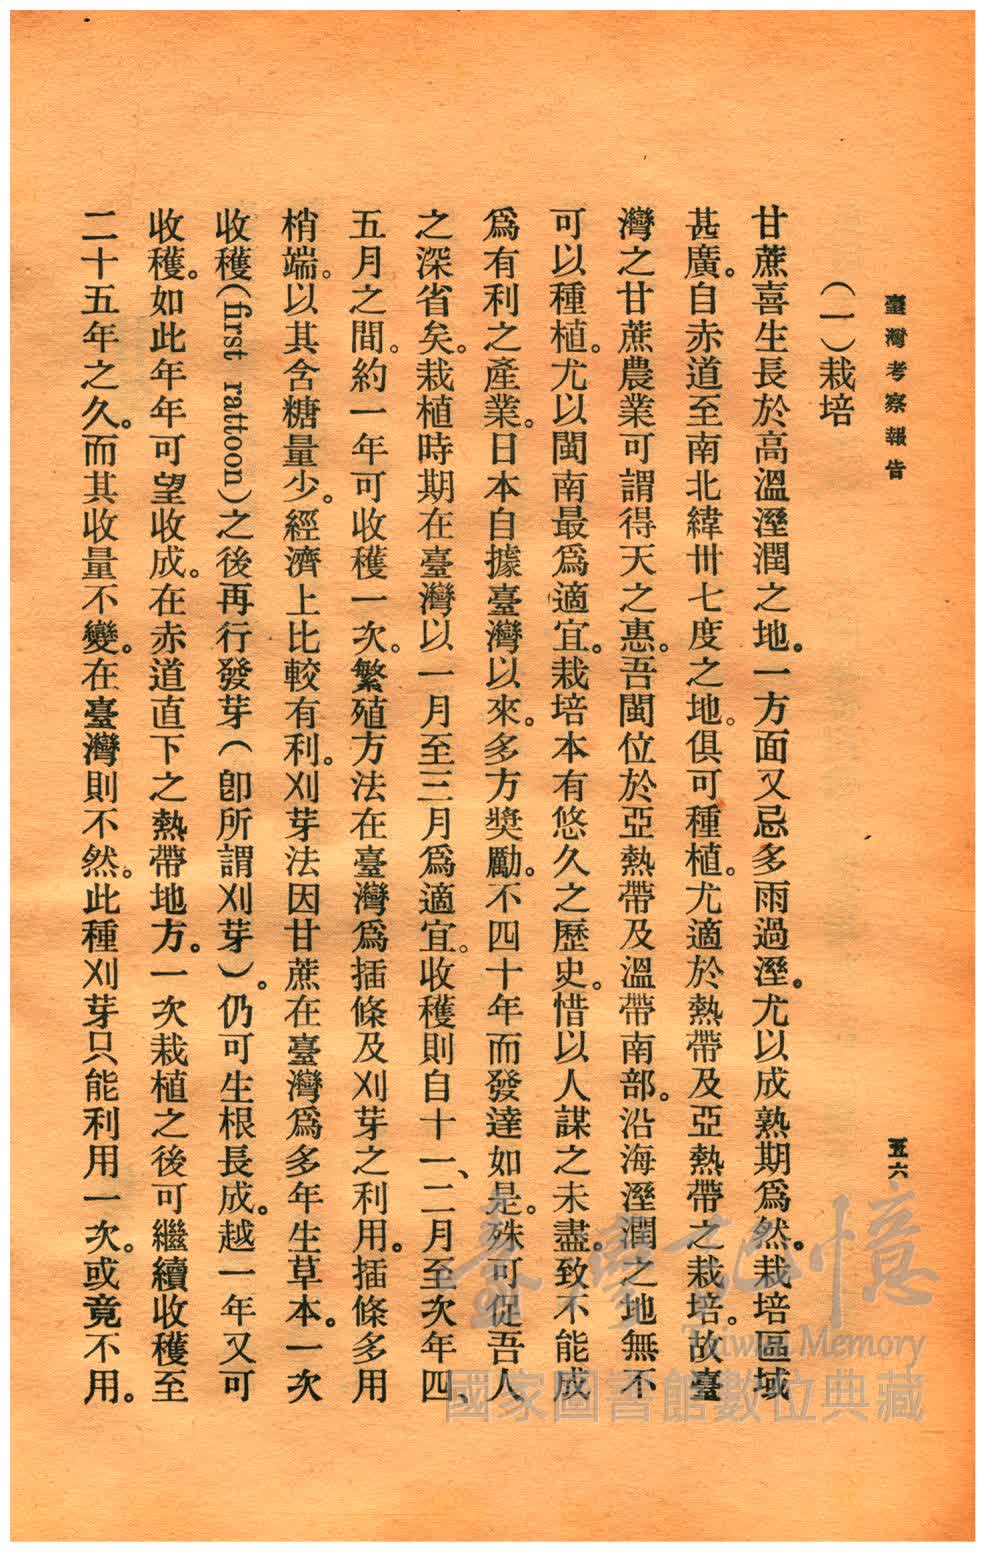 臺灣考察報告
五六
(一)栽培
甘蔗喜生長於高溫溼潤之地。一方面又忌多雨過溼。尤以成熟期爲然。栽培區域
甚廣。自赤道至南北緯卅七度之地。俱可種植。尤適於熱帶及亞熱帶之栽培。故臺
灣之甘蔗農業可謂得天之惠。吾閩位於亞熱帶及溫帶南部。沿海溼潤之地無不
可以種植。尤以閩南最爲適宜。栽培本有悠久之歷史。惜以人謀之未盡。致不能成
爲有利之產業。日本自據臺灣以來。多方獎勵。不四十年而發達如是。殊可促吾人
之深省矣。栽植時期在臺灣以一月至三月爲適宜。收穫則自十一、二月至次年四、
五月之間。約一年可收穫一次。繁殖方法在臺灣爲插條及刈芽之利用。插條多用
梢端。以其含糖量少。經濟上比較有利。刈芽法因甘蔗在臺灣爲多年生草本。一次
收穫(first rattoon)之後再行發芽(卽所謂刈芽)。仍可生根長成。越一年又可
收穫。如此年年可望收成。在赤道直下之熱帶地方。一次栽植之後可繼續收穫至
二十五年之久。而其收量不變。在臺灣則不然。此種刈芽只能利用一次。或竟不用。
臺灣記憶
Taiwan Memory
國家圖書館數位典藏